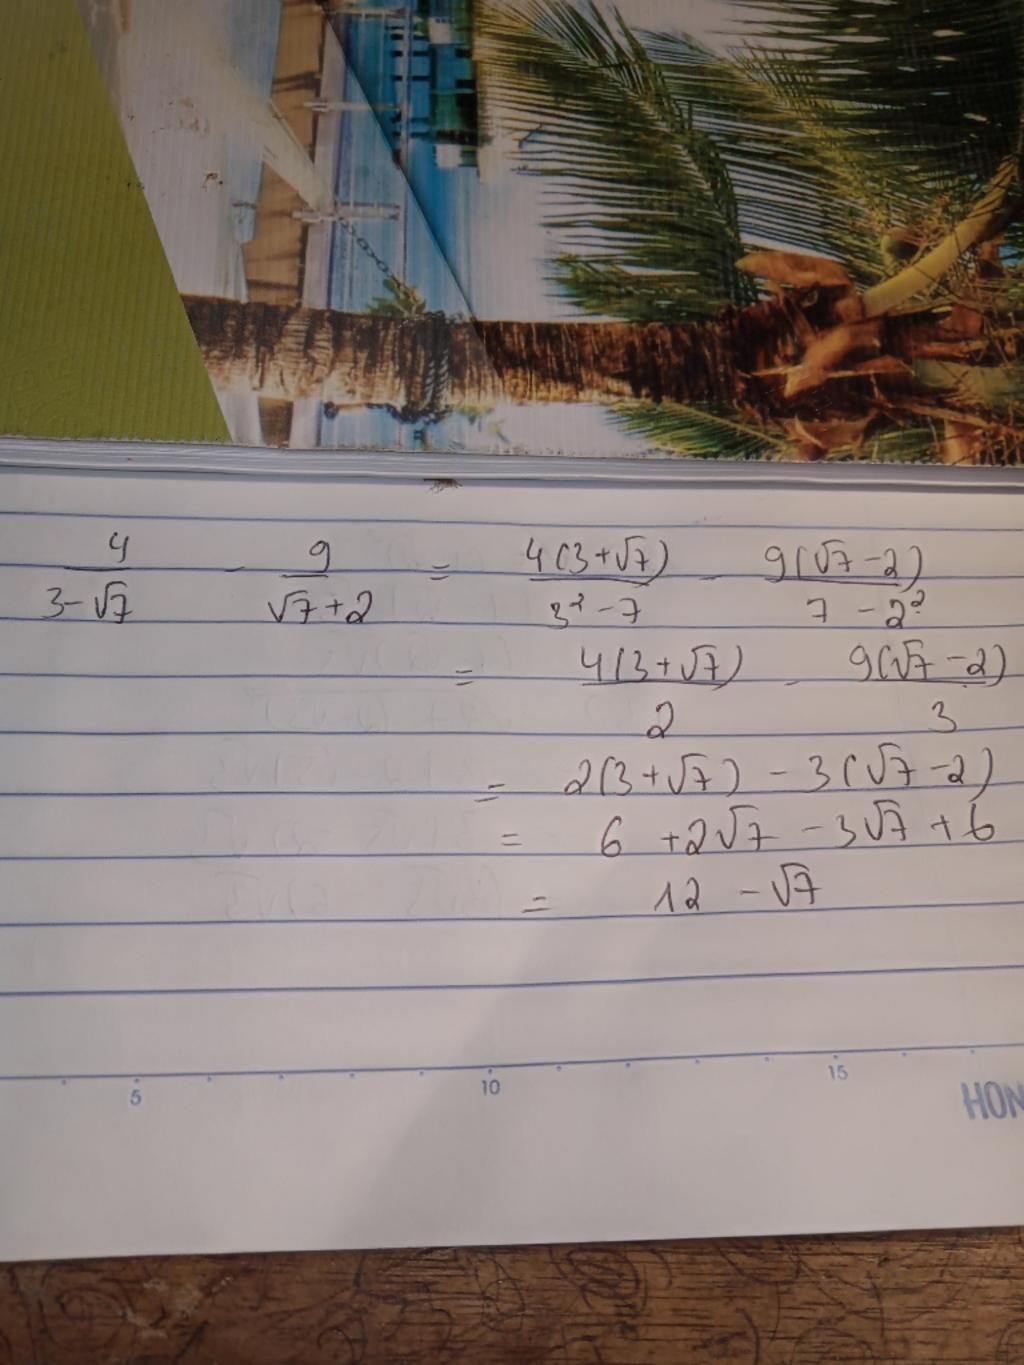 4/(3-√7) - 9/(√7+2) = 4(3+√7)/(3²-7) - 9(√7-2)/(7-2²)
= 4(3+√7)/2 - 9(√7-2)/3
= 2(3+√7) - 3(√7-2)
= 6 +2√7 -3√7 +6
= 12 -√7
5 10 15
HON